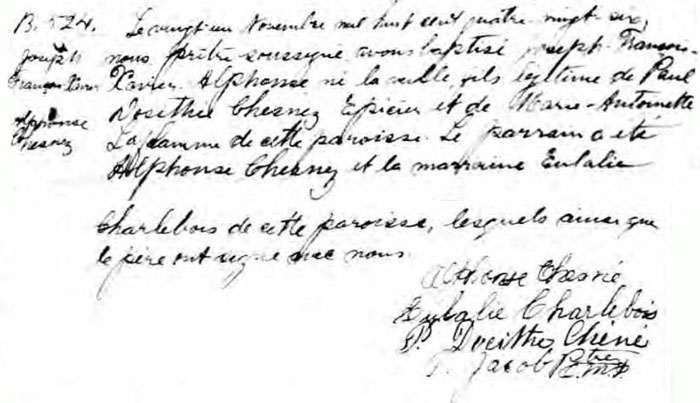 B.524.
Joseph
François Xavier
Alphonse
Chesnez
Le vingt un Novembre mil huit cent quatre-vingt-six,
nous prêtre soussigné avons baptisé Joseph-François-
Xavier-Alphonse né la veille, fils légitime de Paul
Dosithée Chesnez Epicier et de Marie-Antoinette
Laflamme de cette paroisse. Le parrain a été
Alphonse Chesnez et la marraine Eulalie
Charlebois de cette paroisse, lesquels ainsi que
le père ont signé avec nous.
Alphonse Chesné
Eulalie Charlebois
P. Docithez Chéné
Jacob Ptre